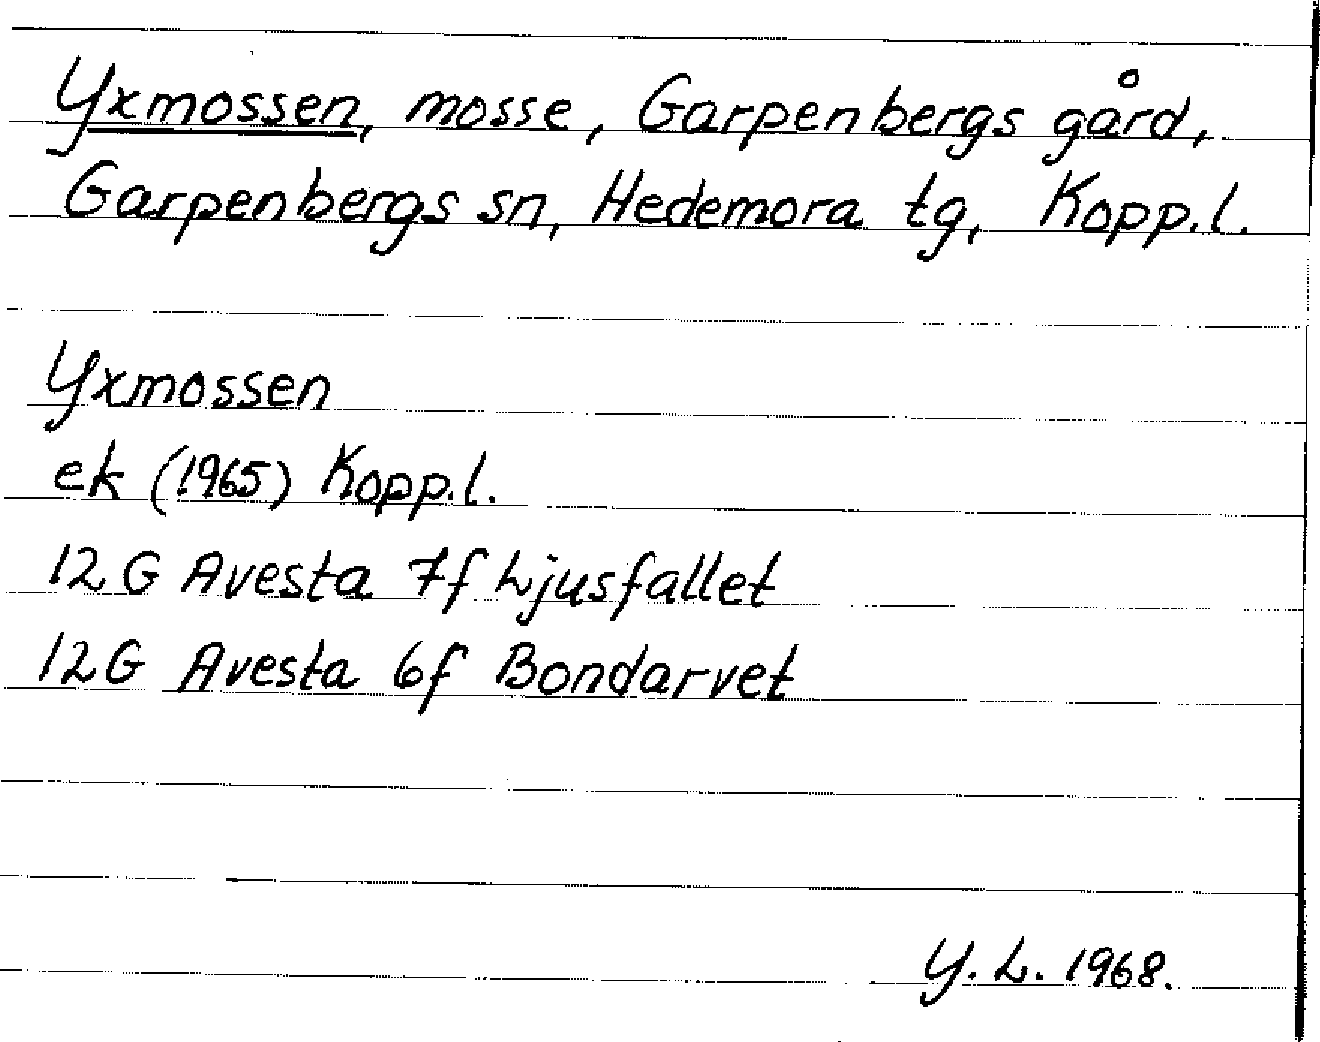 Yxmossen, mosse, Garpenbergs gård,
Garpenbergs sn, Hedemora tg, Kopp.l.
Yxmossen
ek (1965) Kopp.l.
12 G Avesta 7f Ljusfallet
12G Avesta 6f Bondarvet
Y.L. 1968.